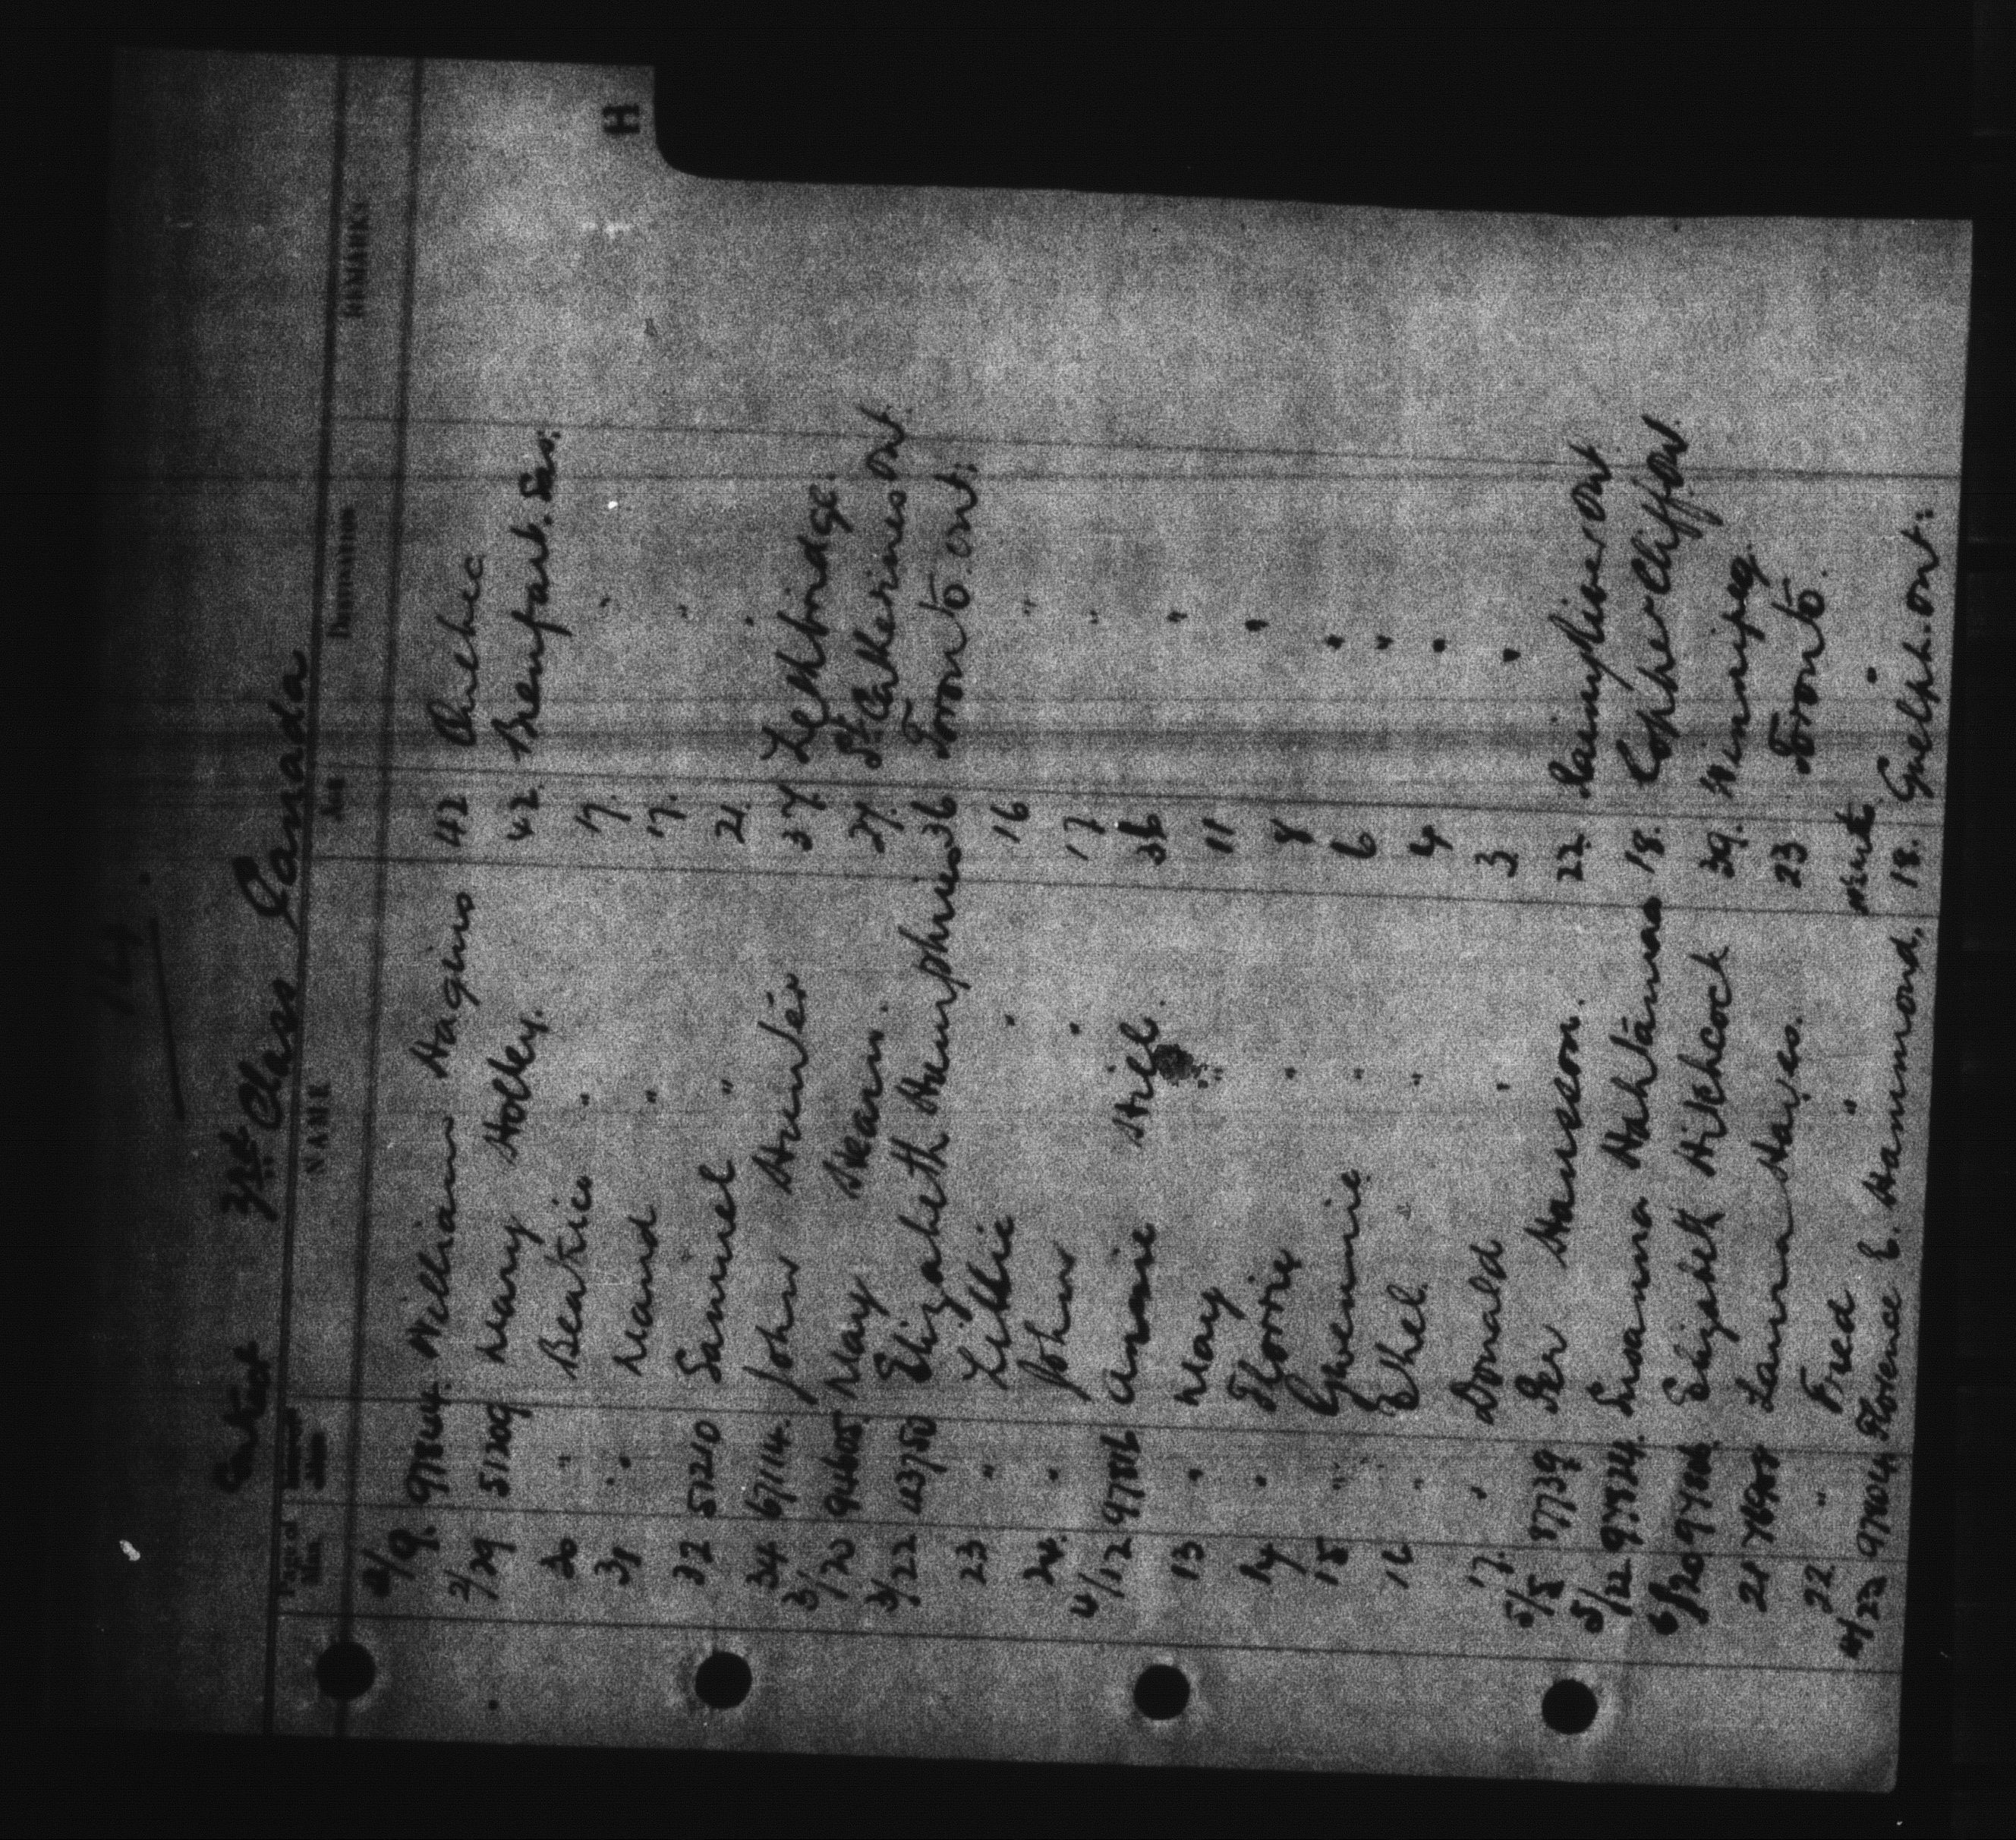 H
14.
3rd Class Canada
Page of NAME Age Destination REMARKS
2/9. 97844. William Hagins 42 Quebec
2/29 51209 Mary Holley. 42.
30 " Beatrice " 17. "
31 " Maud " 17. "
32 51210 Samuel " 21. "
34 67114. John Hunter 37 Lethbridge.
3/20 94605. May Hearn. 27. St. Catherines Ont.
3/22 123750 Elizabeth Humphries 36 Toronto. Ont.
23 " Lillie " 16 "
24. " John " 17 "
4/12 Annie Hill. 38 "
13 " May " 11 "
14 " Florrie " 8 "
15 " Gwennie " 6 "
16 " Ethel. " 4 "
17. " Donald " 3 "
5/5 37739 Per Hansson. 22. Ont.
5/12 97834. Susanna 18. Copper Cliff Ont.
6/20 Elizabeth Hitchcock 39. Winnipeg.
21 Laura Hayes. 23 Toronto.
22 " Fred " mnths "
4/22 97604. Florence E. Hammond. 18. Guelph. Ont.